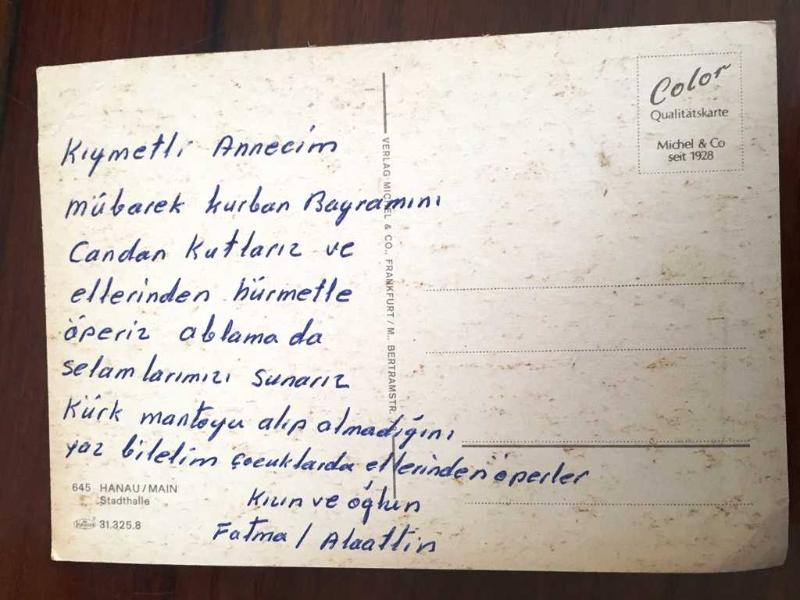 Kıymetli Annecim
mübarek kurban Bayramını
Candan Kutlarız ve
ellerinden hürmetle
öperiz ablama da
selamlarımızı sunarız
Kürk mantoyu alıp almadığını
yaz bilelim çocuklarda ellerinden öperler
Kızın ve oğlun
Fatma / Alaattin
645 HANAU/MAIN
Stadthalle
31.325.8
VERLAG MICHEL & CO., FRANKFURT/M., BERTRAMSTR.
Color
Qualitätskarte
Michel & Co
seit 1928